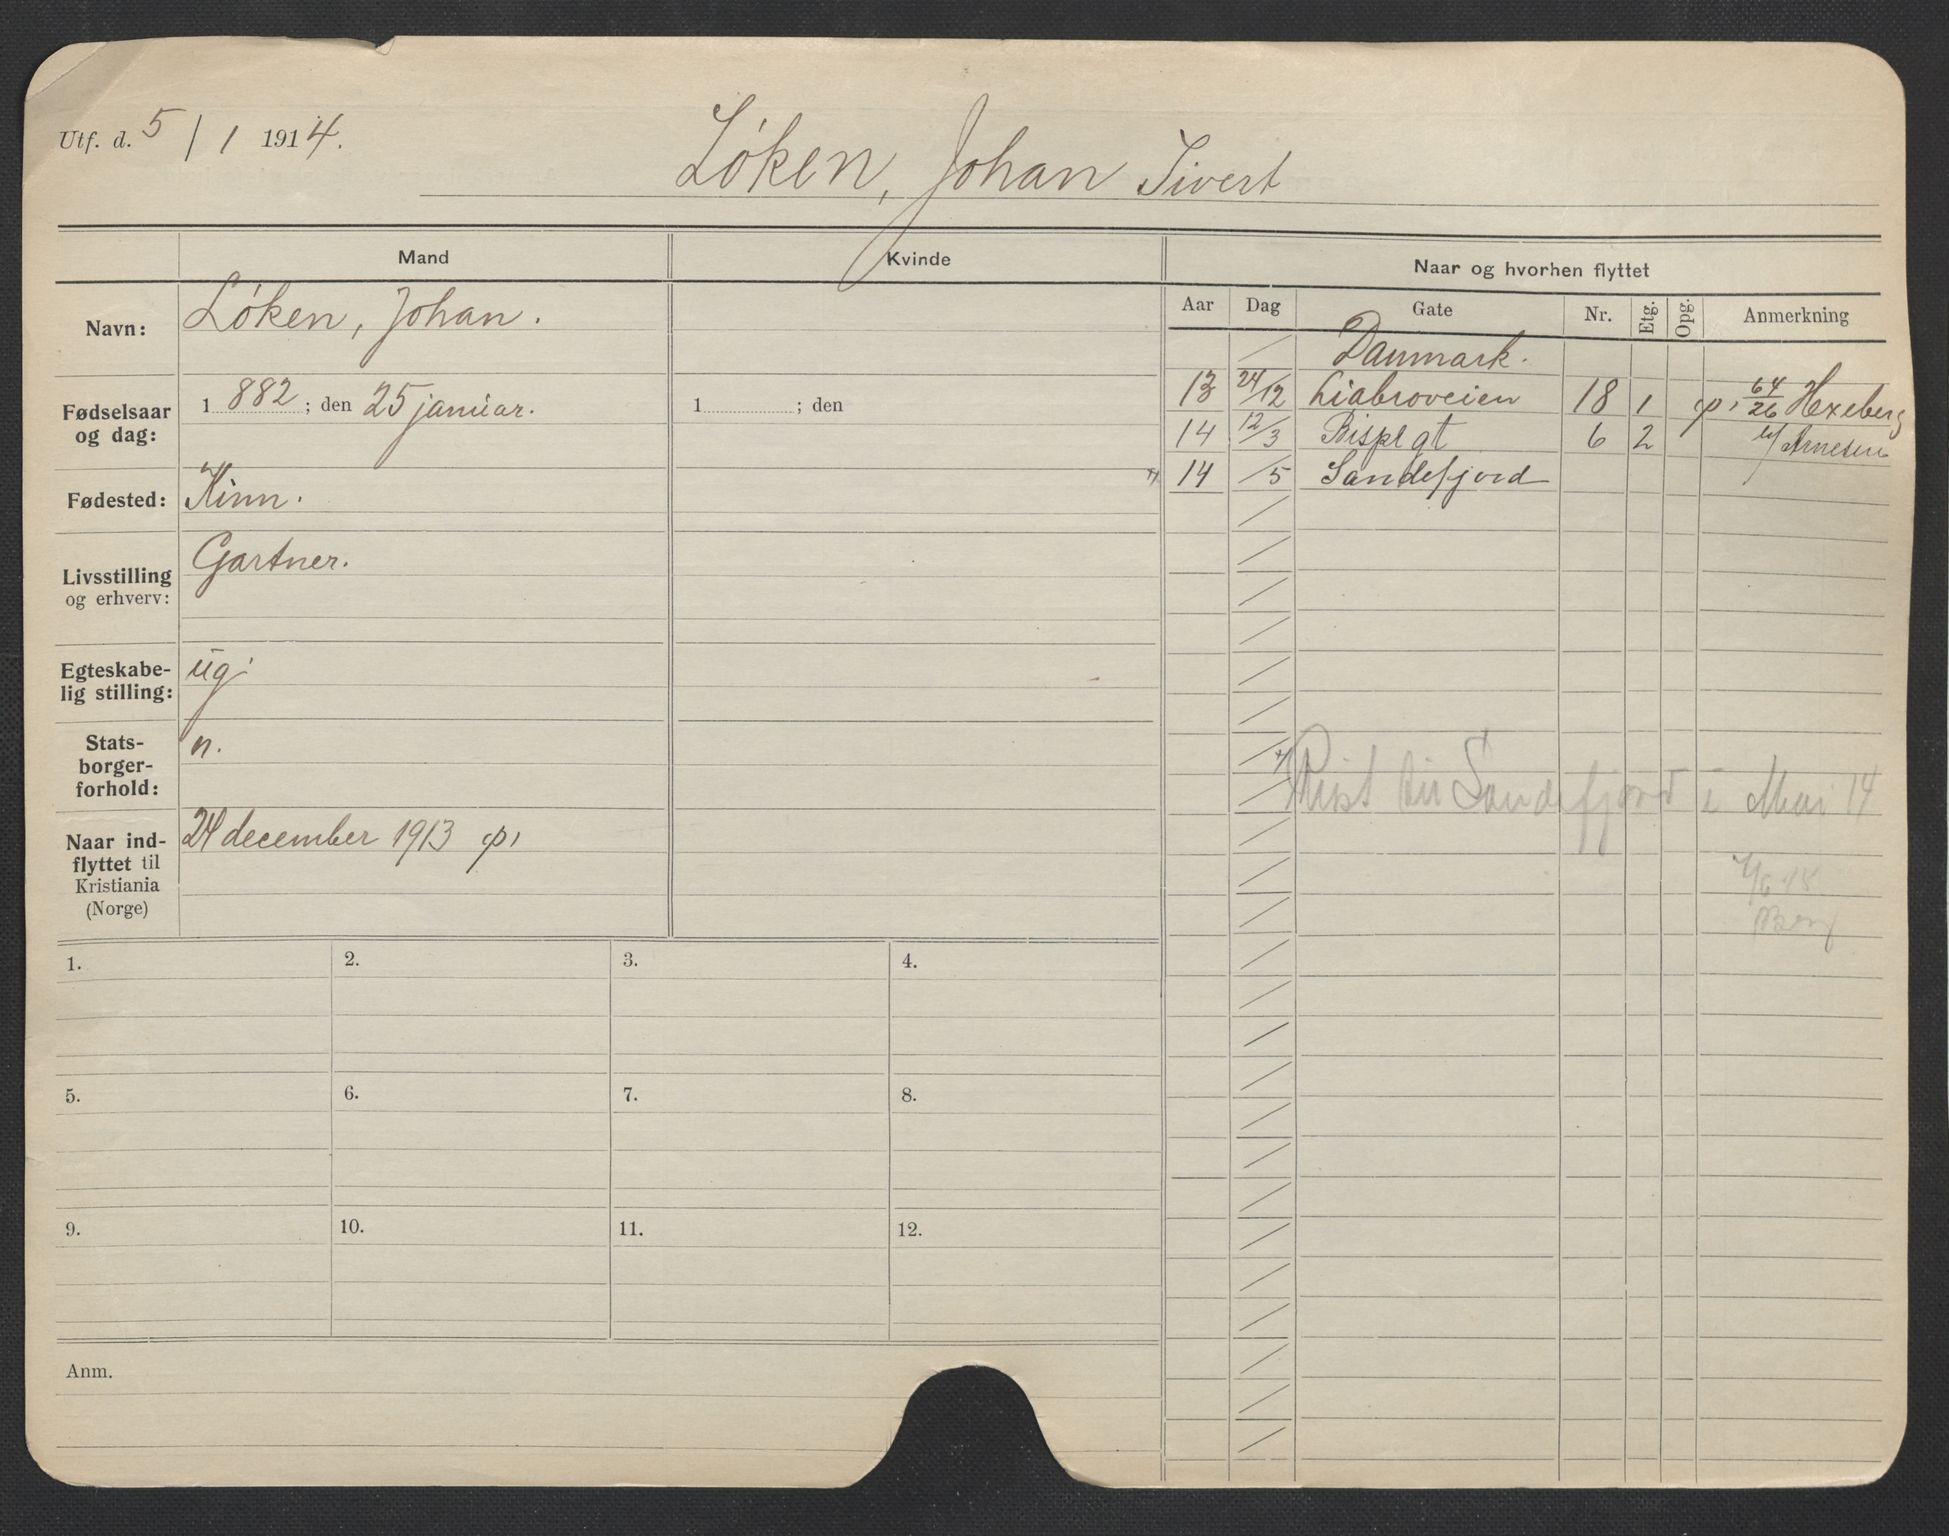 Utf. d. 5/1 1914.
Løken, Johan Sivert
Mand
Kvinde
Naar og hvorhen flyttet
Navn: Løken, Johan.
Fødselsaar og dag: 1882; den 25 januar.
1 ; den
Fødested: Kinn.
Livsstilling og erhverv: Gartner.
Egteskabe-
lig stilling: ug.
Stats-
borger-
forhold: n.
Naar ind-
flyttet til
Kristiania
(Norge)
24 december 1913 p,
Aar Dag Gate Nr. Etg. Opg. Anmerkning
Danmark.
13 24/12 Liabroveien 18 1 p, 64/26 Hexeberg
14 12/3 Bispegt 6 2 v/ Arnesen
14 /5 Sandefjord
Reist til Sandefjord i Mai 14
Berg
1. 2. 3. 4.
5. 6. 7. 8.
9. 10. 11. 12.
Anm.